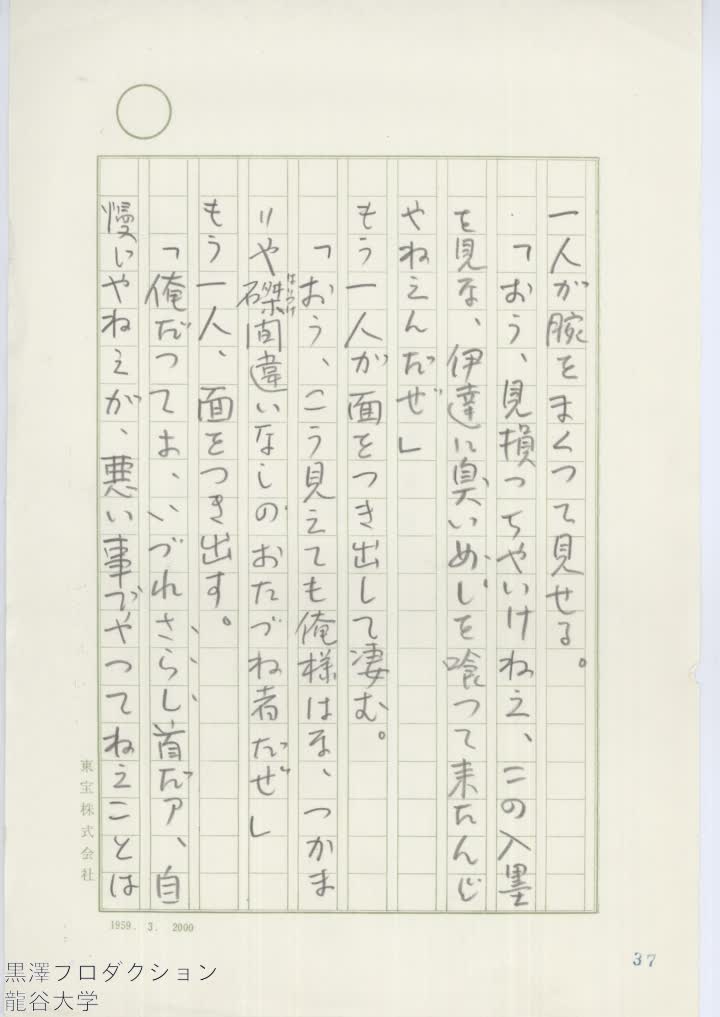 一人が腕をまくつて見せる。
「おう、見損つちやいけねえ、この入墨
を見な、伊達に臭いめしを喰つて来たんじ
やねえんだぜ」
もう一人が面をつき出して凄む。
「おう、こう見えても俺様はな、つかま
りや磔間違いなしのおたづね者だぜ」
はりつけ
もう一人、面をつき出す。
「俺だつてな、いづれさらし首だア、自
慢じやねえが、悪い事でやつてねえことは
東宝株式会社
1959. 3. 2000
37
黒澤プロダクション
龍谷大学